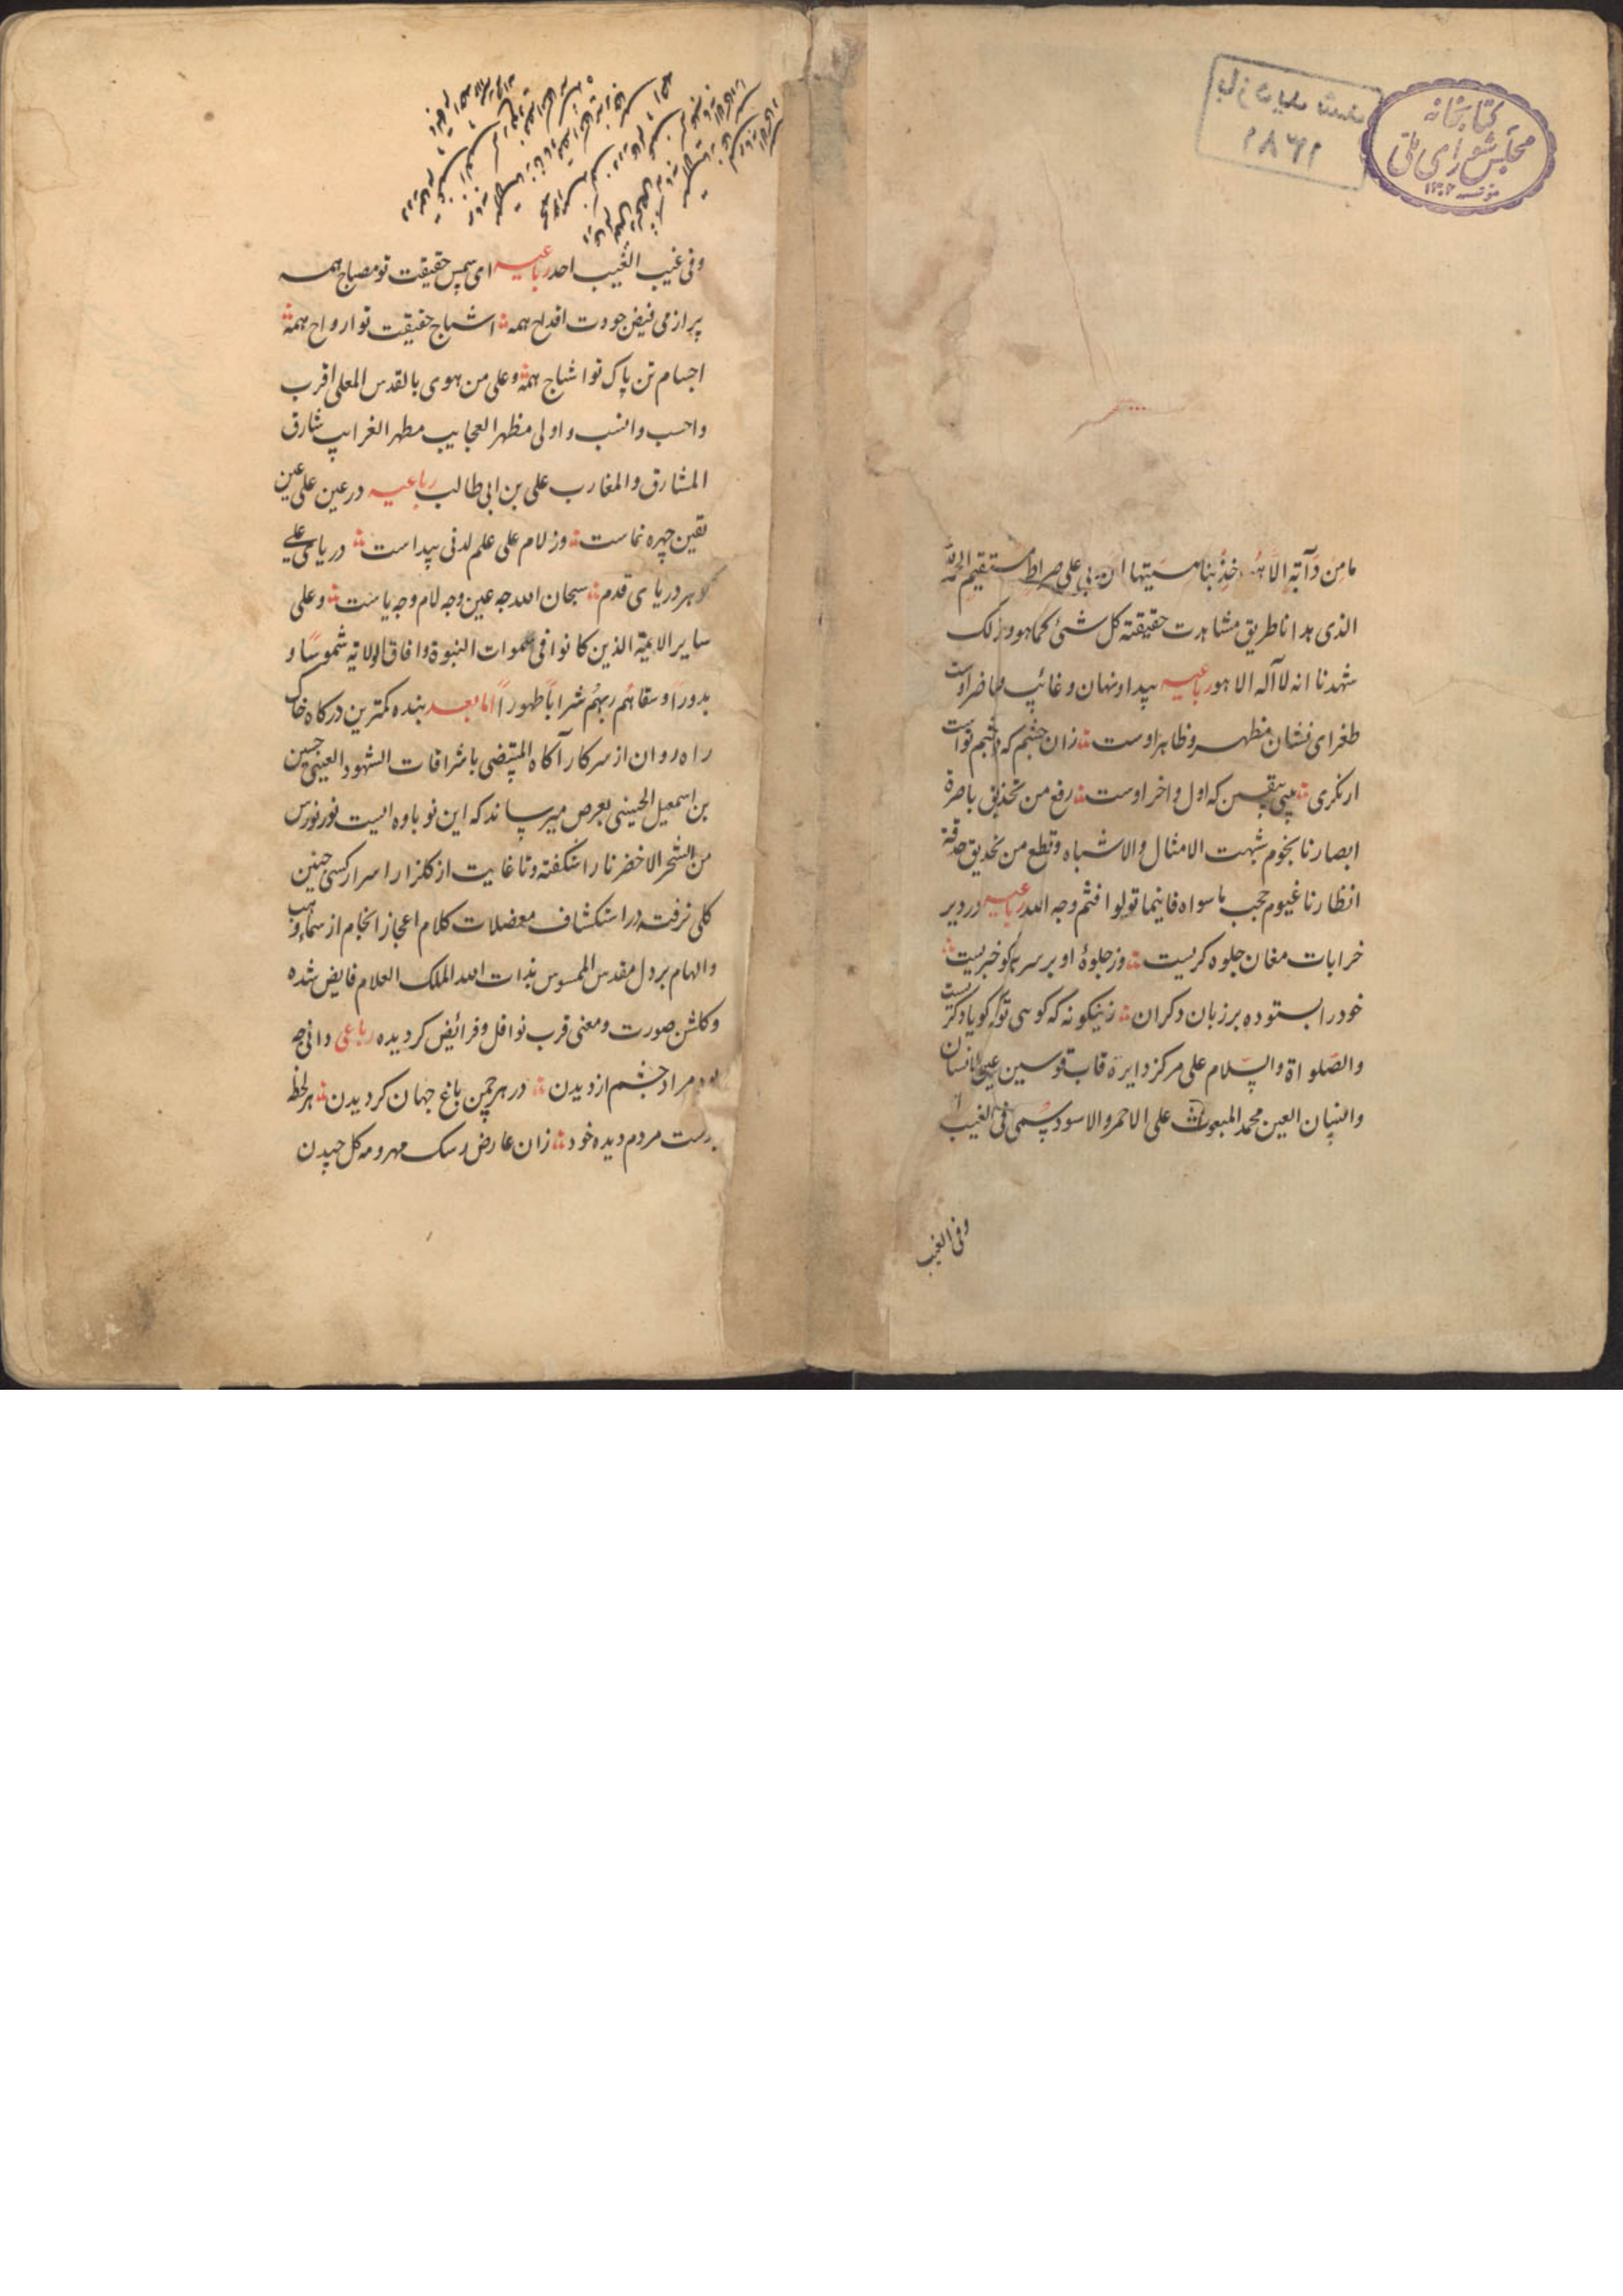 کتابخانه
مجلس شورای ملی
بازدید شد
ما من دآبة الا هو اخذ بناصیتها ان ربی علی صراط مستقیم الحمد لله
الذی هدانا طریق مشاهدت حقیقته کل شئ کما هو و ذلک
شهدنا انه لا اله الا هو رباعیه پیدا و نهان و غائب و حاضر اوست
طغرای نشان مظهر و ظاهر اوست زان چشم که چشم تو است
ار نکری می بین بیقین که اول و اخر اوست رفع من تحذیق باصرة
ابصارنا نجوم شبهت الامثال والاشباه و قطع من تحدیق حدقة
انظارنا غیوم حجب ما سواه فاینما تولوا فثم وجه الله رباعیه در دیر
خرابات مغان جلوه کریست وز جلوهٔ او بر سر هر کو خبریست
خود را بستوده بر زبان دکران زینکونه که کوسی تو که کویا دکریست
والصلواة والسلام علی مرکز دایرة قاب قوسین عین الانسان
والنسان العین محمد المبعوث علی الاحمر والاسود یسمی فی الغیب
وفی الغیب
وفی غیب الغیب احد رباعیه ای شمس حقیقت تو مصباح همه
پر از می فیض جودت اقداح همه اشباح حقیقت تو ارواح همه
اجسام تن پاک تو اشباح همه و علی من هوی بالقدس المعلی اقرب
واحسب وانسب و اولی مظهر العجایب مطهر الغرایب شارق
المشارق والمغارب علی بن ابی طالب رباعیه در عین علی عین
یقین چهره نماست وز لام علی علم لدنی پیداست در یای علی
کوهر دریای قدم سبحان الله چه عین و چه لام و چه یاست و علی
سایر الایمة الذین کانوا فی سموات النبوة وافاق الولایة شموسا و
بدورا و سقاهم ربهم شرابا طهورا اما بعد بنده کمترین درکاه خاک
راه روان از سر کار آکاه المقتضی باشراقات الشهود العینی حسین
بن اسمعیل الحسینی بعرض میرساند که این نوباوه ایست نورنورس
من الشجر الاخضر نارا شکفته و تا غایت از کلزار اسرار کسی چنین
کلی نرفته در استکشاف معضلات کلام اعجاز انجام از سماء مواهب
والهام بر دل مقدس الممسوس بذات الله الملک العلام فایض شده
و کلشن صورت و معنی قرب نوافل و فرائض کردیده رباعی دانی چه
بود مراد چشم از دیدن در هر چمن باغ جهان کردیدن هر لحظه
بدست مردم دیده خود زان عارض رشک مهر و مه کل چیدن